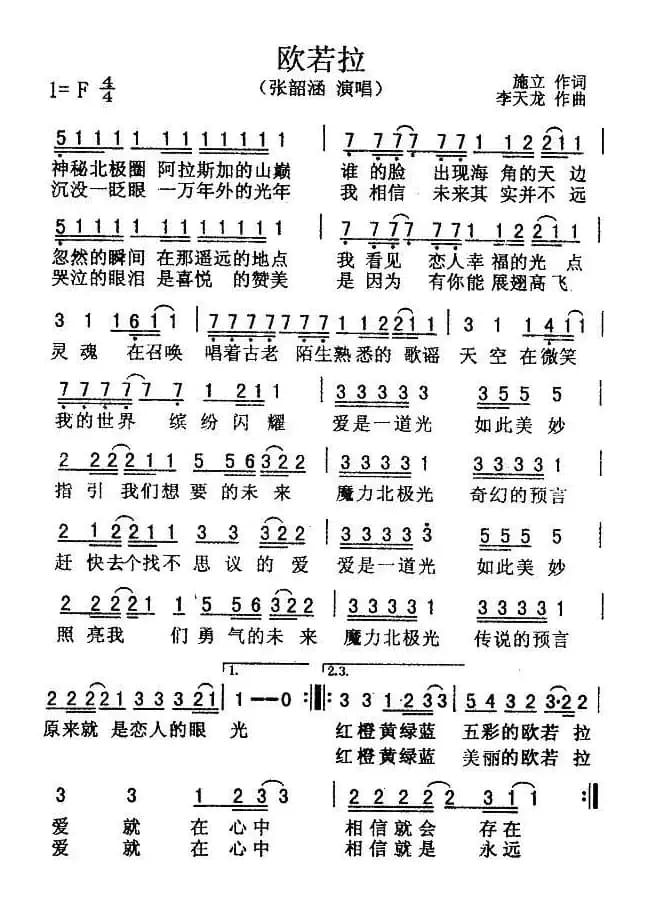 欧若拉
1=F 4/4
（张韶涵 演唱）
施立 作词
李天龙 作曲
51111 11111111 | 7 77777 77 11221 |
神秘北极圈 阿拉斯加的山巅 谁的脸 出现海角的天边
沉没一眨眼 一万年外的光年 我相信 未来其实并不远
51111 11111111 | 7 77777 777 12211 |
忽然的瞬间 在那遥远的地点 我看见 恋人幸福的光点
哭泣的眼泪 是喜悦的赞美 是因为 有你能展翅高飞
3 1 1611 | 77777777 112211 | 3 1 1411 |
灵魂 在召唤 唱着古老 陌生熟悉的歌谣 天空在微笑
77777 7 1 211 | 33333 1 355 5 5 |
我的世界 缤纷闪耀 爱是一道光 如此美妙
2 22211 5 56322 | 33333 1 33331 |
指引我们想要的未来 魔力北极光 奇幻的预言
2 22211 5 5 3 322 | 333333 555 5 5 |
赶快去个找不思议的爱 爱是一道光 如此美妙
2 2221 1 5 56322 | 33333 1 33331 |
照亮我 们勇气的未来 魔力北极光 传说的预言
1. 2.3.
2222213 3 3 21 | 1——0 :‖: 3 3 1·233 | 5 4 3 2 3·22 |
原来就是恋人的眼光 红橙黄绿蓝 五彩的欧若拉
红橙黄绿蓝 美丽的欧若拉
3 3 1 2 33 | 1 2 2 2 2 311 :‖
爱 就 在 心中 相信就会 存在
爱 就 在 心中 相信就是 永远